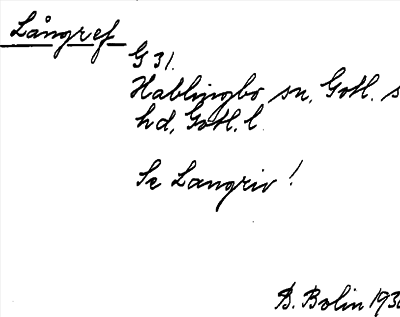 Långref
G 31.
Hablingbo sn, Gotl. s
hd, Gotl. l
Se Langriv!
B. Bolin 193